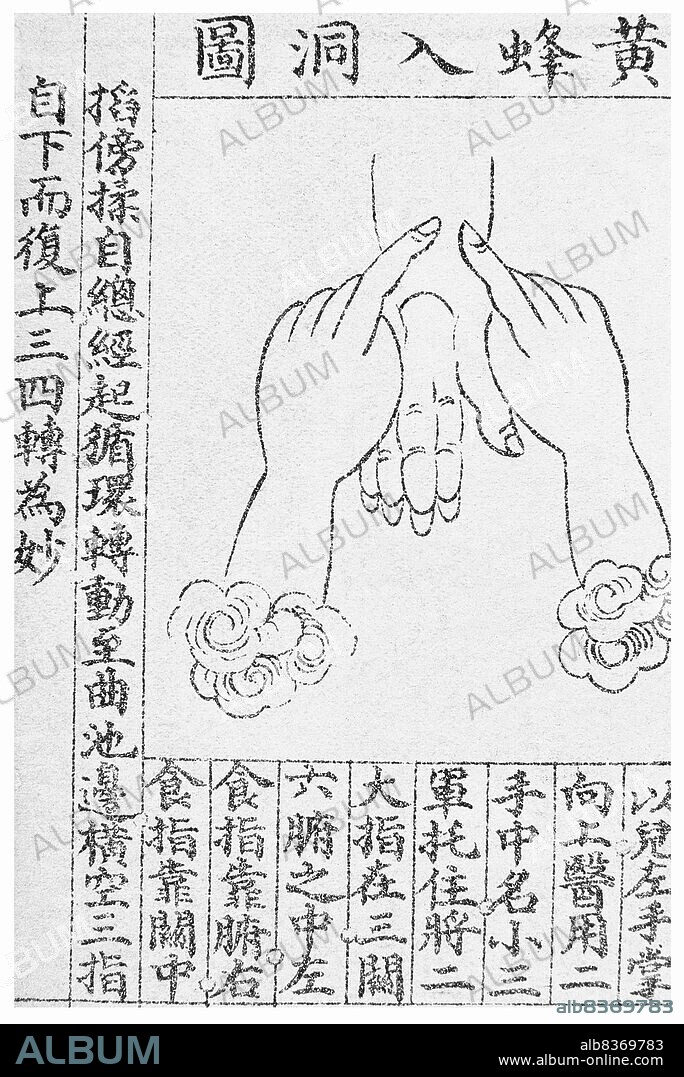 黄蜂入洞圖
以兒左手掌
向上醫用二
手中名小三
軍托住將二
大指在三關
六腑之中左
食指靠腑右
食指靠關中
掐傍揉自總經起循環轉動至曲池邊橫空三指
自下而復上三四轉為妙
ALBUM
alb8369783
ALBUM
alb8369783
www.album-online.com